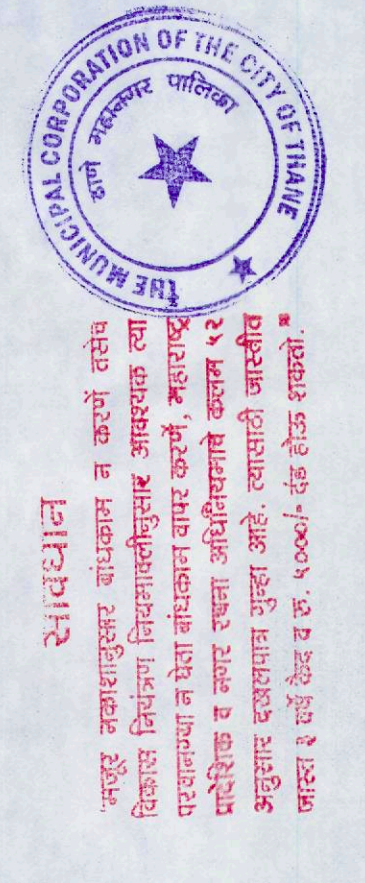 THE MUNICIPAL CORPORATION OF THE CITY OF THANE
ठाणे महानगर पालिका
सावधान
"मंजूर नकाशानुसार बांधकाम न करणें तसेच
विकास नियंत्रण नियमावलीनुसार आवश्यक त्या
परवानग्या न घेता बांधकाम वापर करणें, महाराष्ट्र
प्रादेशिक व नगर रचना अधिनियमाचे कलम ५२
अनुसार दखलपात्र गुन्हा आहे. त्यासाठी जास्तीत
जास्त ३ वर्षे कैद व रु. ५०००/- दंड होऊ शकतो."